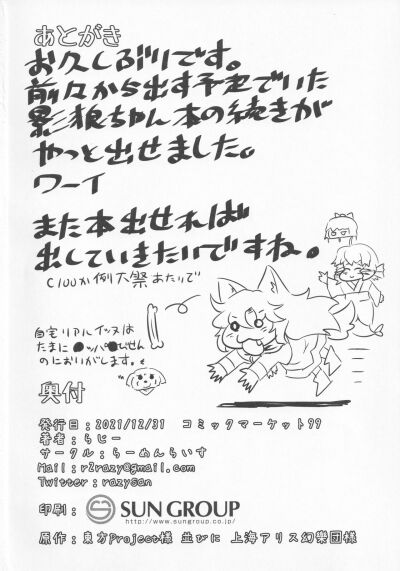 あとがき
お久しぶりです。
前々から出す予定でいた
影狼ちゃん本の続きが
やっと出せました。
ワーイ
また本出せれば
出していきたいですね。
C100か例大祭あたりで
自宅リアルイッヌは
たまに●ッパ●びせん
のにおいがします。
奥付
発行日：2021/12/31 コミックマーケット99
著者：らじー
サークル：らーめんらいす
Mail：r2razy@gmail.com
Twitter：razysan
印刷：SUN GROUP
http://www.sungroup.co.jp/
原作：東方Project様 並びに 上海アリス幻樂団様